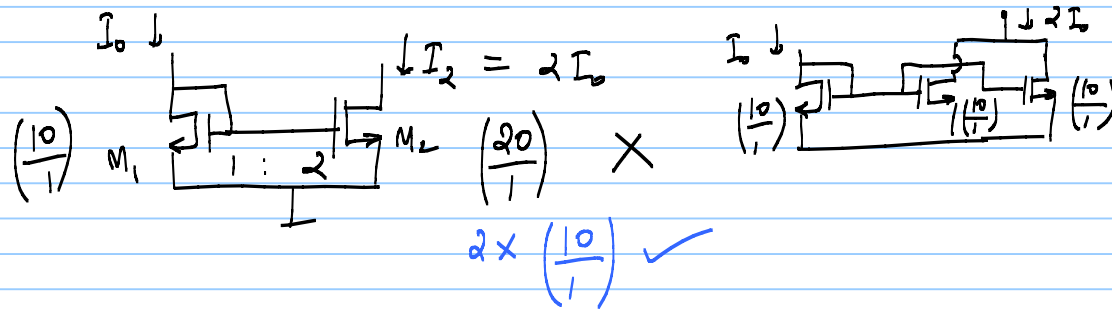 I₀ ↓
↓ I₂ = 2 I₀
(10/1) M₁
1 : 2
M₂ (20/1) ✗
2 × (10/1) ✓
I₀ ↓
↓ 2 I₀
(10/1)
(10/1)
(10/1)